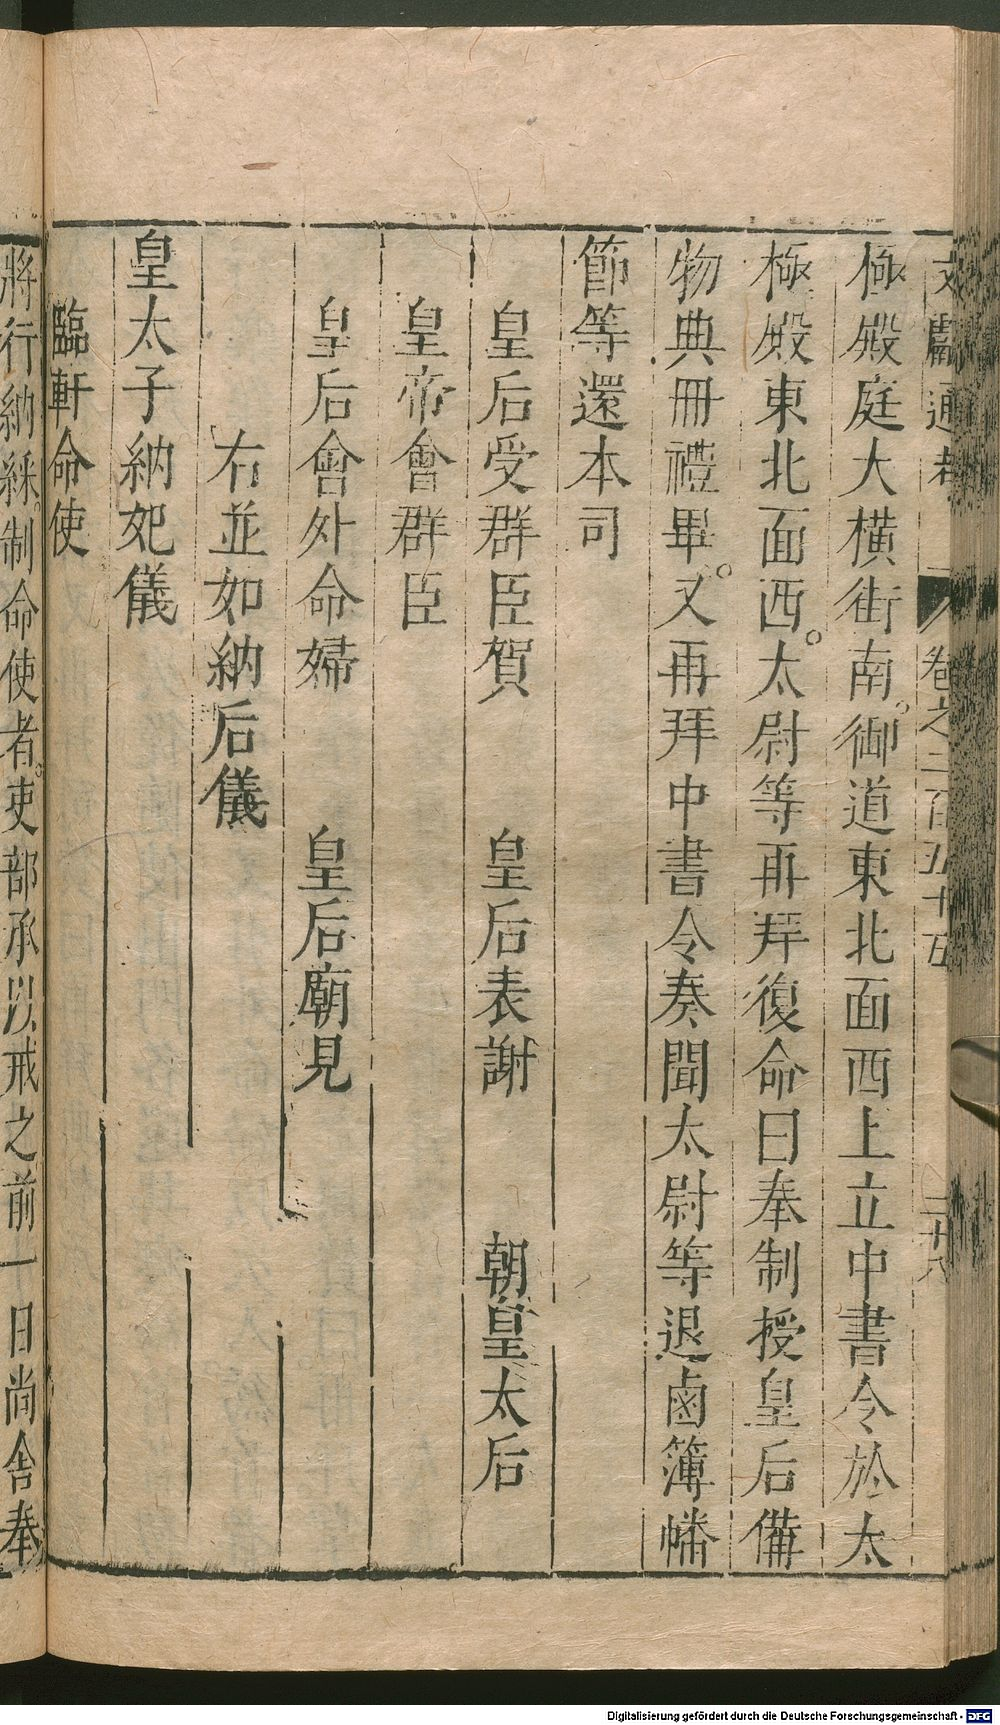 文獻通考 卷之二百五十五 二十八
極殿庭大橫街南。御道東北面西上立中書令於太
極殿東北面西。太尉等再拜復命曰奉制授皇后備
物典冊禮畢。又再拜中書令奏聞太尉等退鹵簿幡
節等還本司
皇后受群臣賀 皇后表謝 朝皇太后
皇帝會群臣
皇后會外命婦 皇后廟見
右並如納后儀
皇太子納妃儀
臨軒命使
將行納綵。制命使者。吏部承以戒之前一日尚舍奉
Digitalisierung gefördert durch die Deutsche Forschungsgemeinschaft - DFG